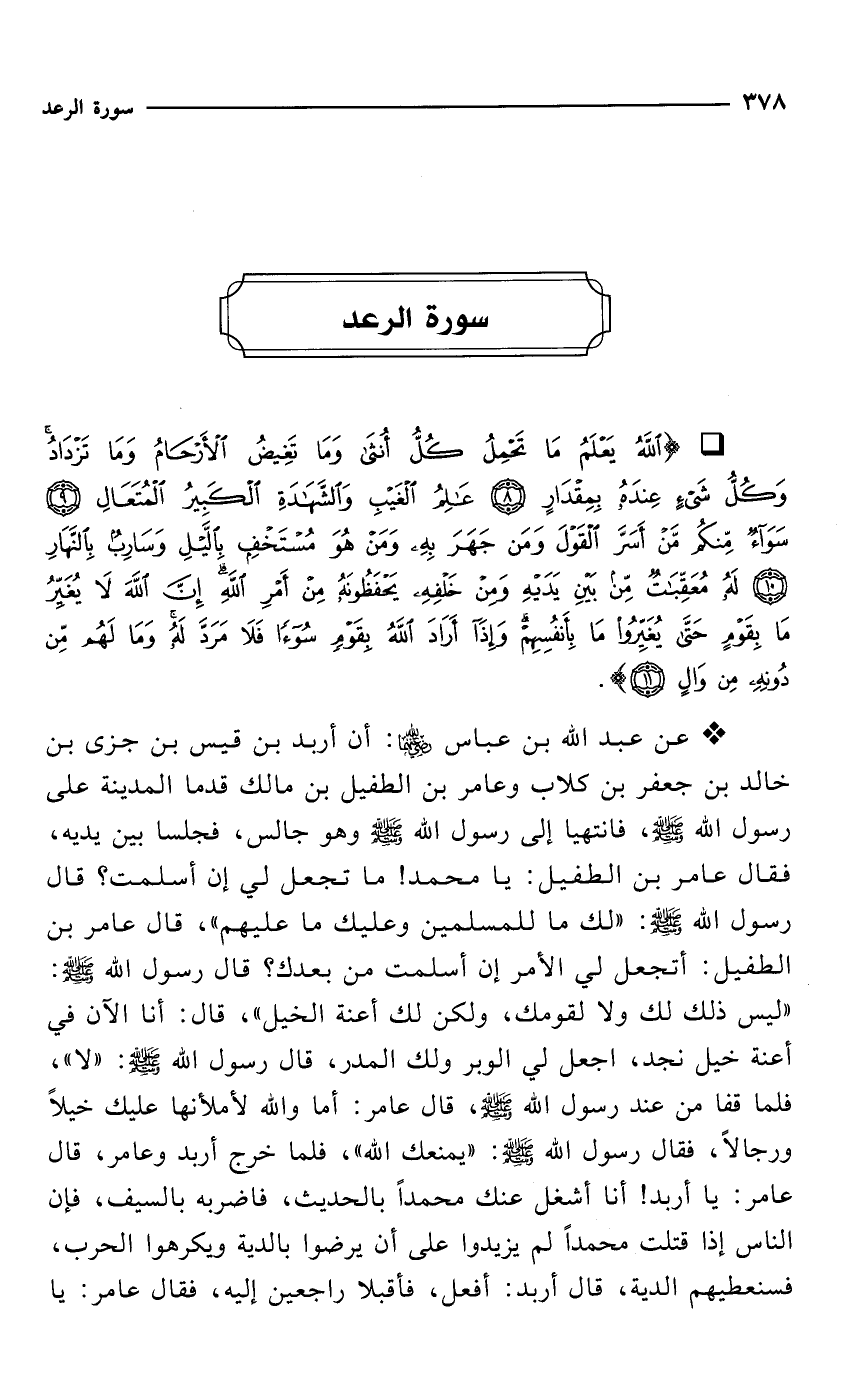 ٣٧٨ سورة الرعد
سورة الرعد
﴿ٱللَّهُ يَعْلَمُ مَا تَحْمِلُ كُلُّ أُنثَىٰ وَمَا تَغِيضُ ٱلْأَرْحَامُ وَمَا تَزْدَادُ ۖ
وَكُلُّ شَىْءٍ عِندَهُۥ بِمِقْدَارٍ ﴿٨﴾ عَٰلِمُ ٱلْغَيْبِ وَٱلشَّهَٰدَةِ ٱلْكَبِيرُ ٱلْمُتَعَالِ ﴿٩﴾
سَوَآءٌ مِّنكُم مَّنْ أَسَرَّ ٱلْقَوْلَ وَمَن جَهَرَ بِهِۦ وَمَنْ هُوَ مُسْتَخْفٍۭ بِٱلَّيْلِ وَسَارِبٌۢ بِٱلنَّهَارِ
﴿١٠﴾ لَهُۥ مُعَقِّبَٰتٌ مِّنۢ بَيْنِ يَدَيْهِ وَمِنْ خَلْفِهِۦ يَحْفَظُونَهُۥ مِنْ أَمْرِ ٱللَّهِ ۗ إِنَّ ٱللَّهَ لَا يُغَيِّرُ
مَا بِقَوْمٍ حَتَّىٰ يُغَيِّرُوا۟ مَا بِأَنفُسِهِمْ ۗ وَإِذَآ أَرَادَ ٱللَّهُ بِقَوْمٍ سُوٓءًا فَلَا مَرَدَّ لَهُۥ ۚ وَمَا لَهُم مِّن
دُونِهِۦ مِن وَالٍ ﴿١١﴾﴾.
عن عبد الله بن عباس رضي الله عنهما: أن أربد بن قيس بن جزى بن
خالد بن جعفر بن كلاب وعامر بن الطفيل بن مالك قدما المدينة على
رسول الله ﷺ، فانتهيا إلى رسول الله ﷺ وهو جالس، فجلسا بين يديه،
فقال عامر بن الطفيل: يا محمد! ما تجعل لي إن أسلمت؟ قال
رسول الله ﷺ: «لك ما للمسلمين وعليك ما عليهم»، قال عامر بن
الطفيل: أتجعل لي الأمر إن أسلمت من بعدك؟ قال رسول الله ﷺ:
«ليس ذلك لك ولا لقومك، ولكن لك أعنة الخيل»، قال: أنا الآن في
أعنة خيل نجد، اجعل لي الوبر ولك المدر، قال رسول الله ﷺ: «لا»،
فلما قفا من عند رسول الله ﷺ، قال عامر: أما والله لأملأنها عليك خيلاً
ورجالاً، فقال رسول الله ﷺ: «يمنعك الله»، فلما خرج أربد وعامر، قال
عامر: يا أربد! أنا أشغل عنك محمداً بالحديث، فاضربه بالسيف، فإن
الناس إذا قتلت محمداً لم يزيدوا على أن يرضوا بالدية ويكرهوا الحرب،
فسنعطيهم الدية، قال أربد: أفعل، فأقبلا راجعين إليه، فقال عامر: يا